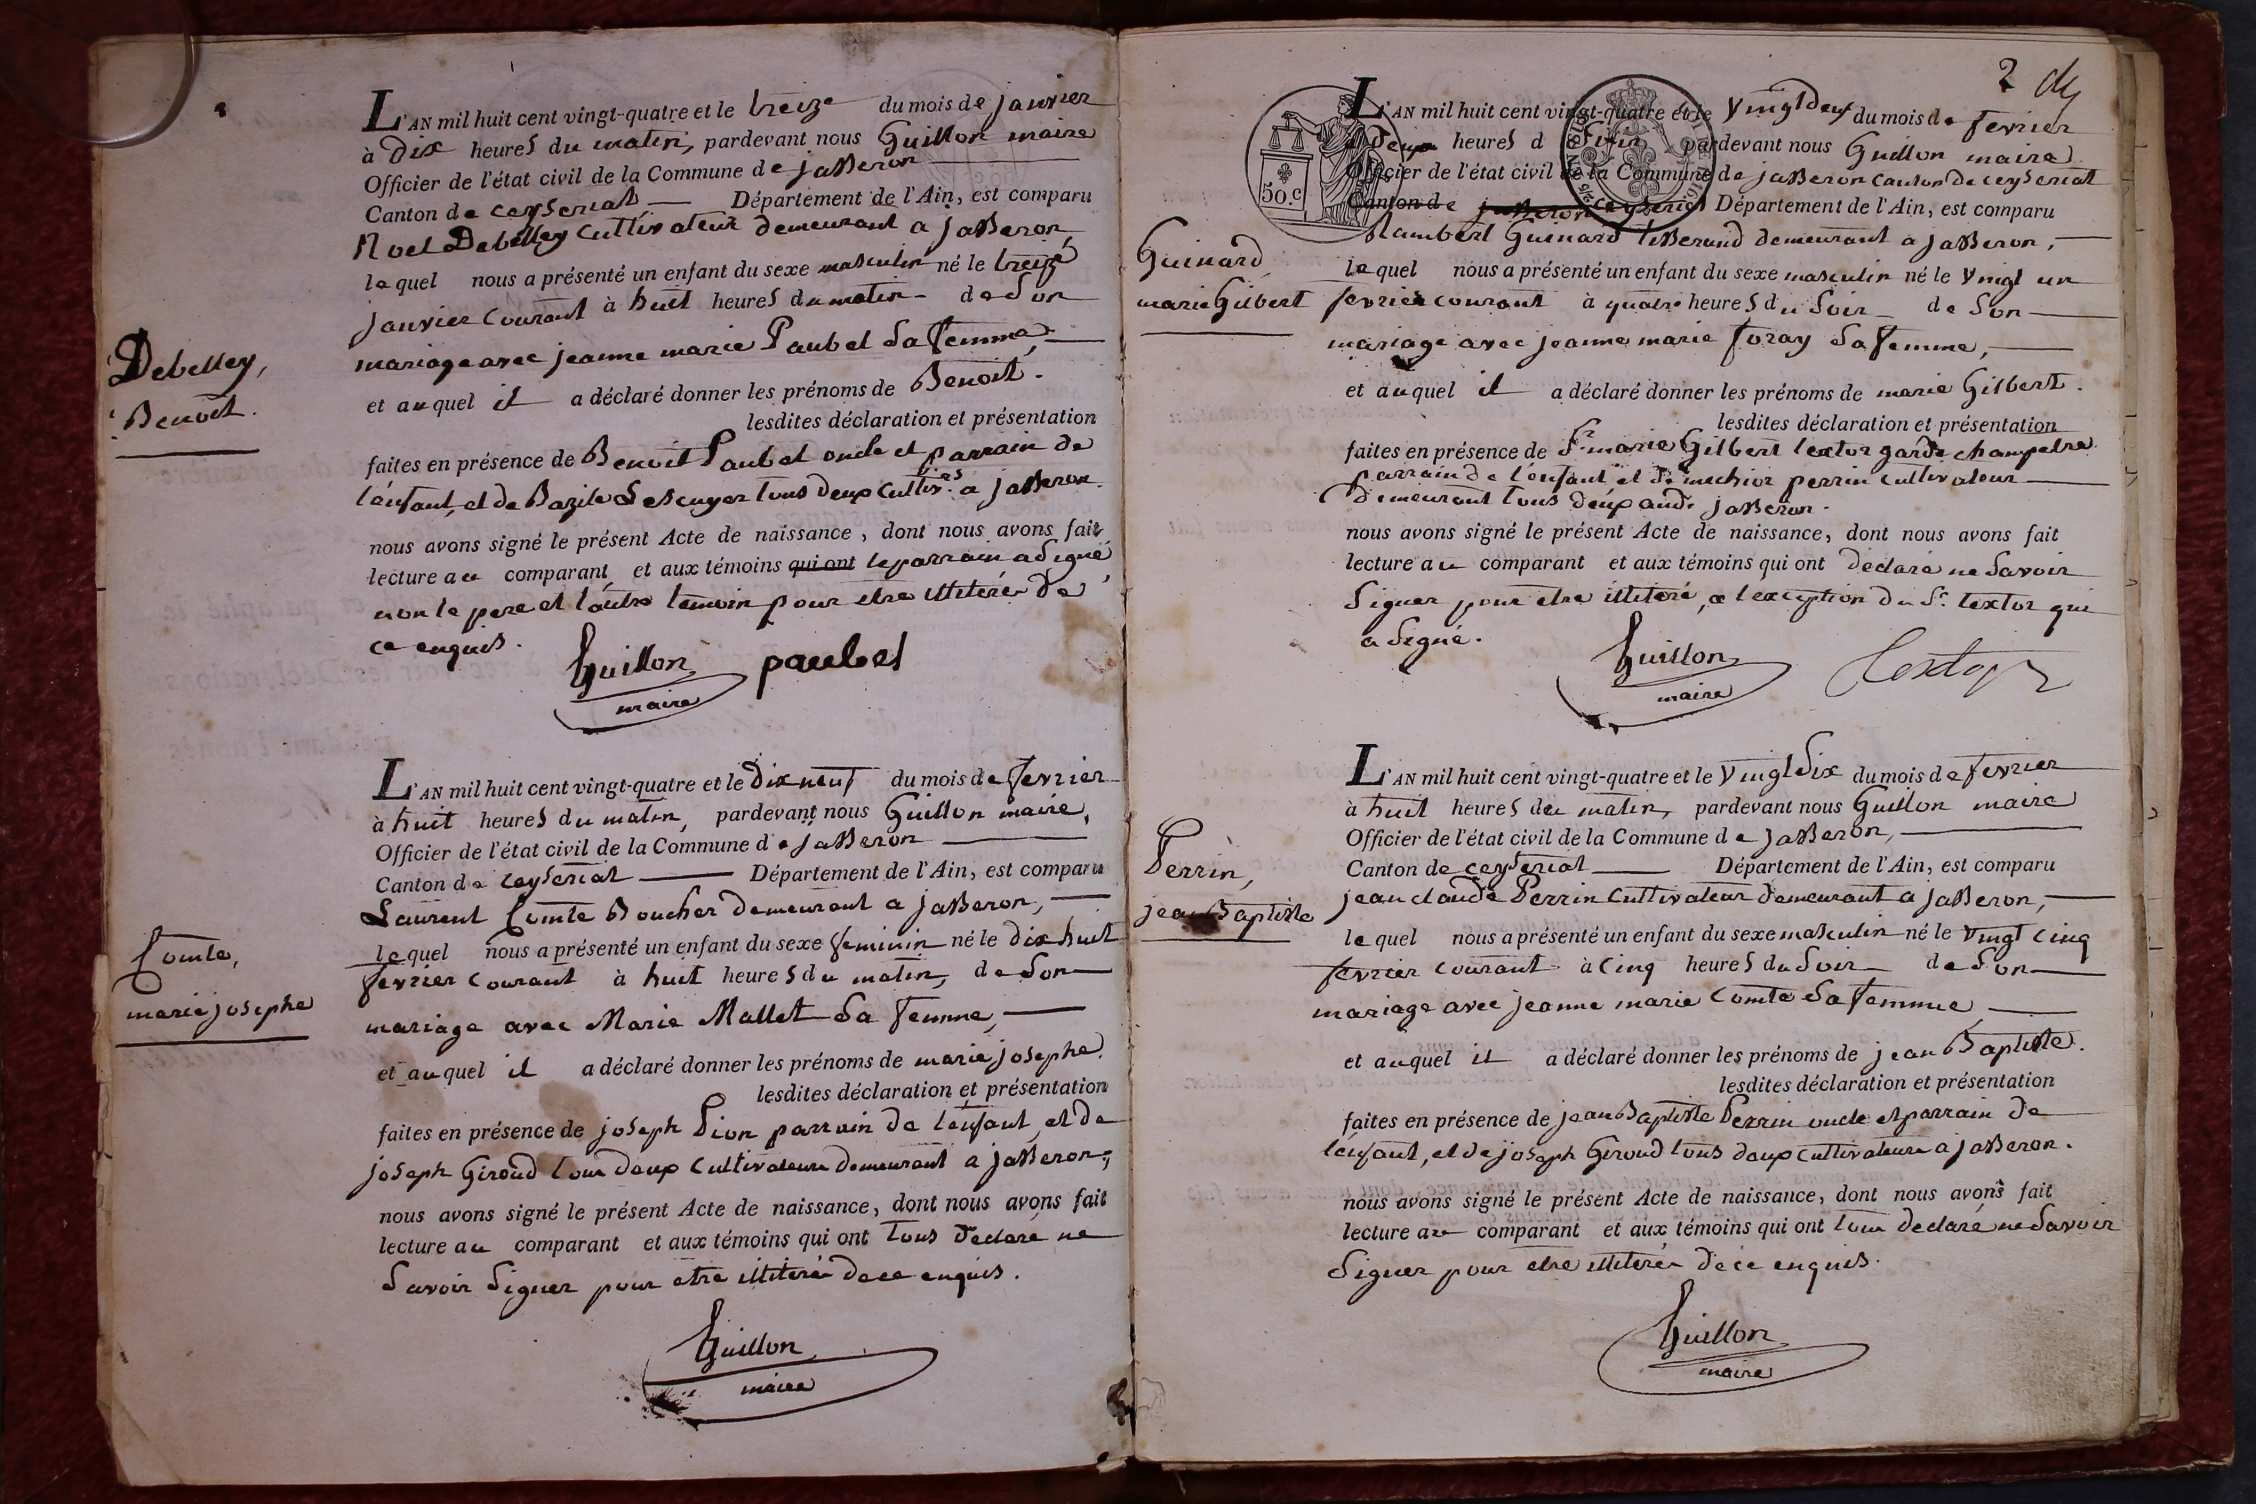 L'AN mil huit cent vingt-quatre et le treize du mois de janvier
à dix heures du matin, pardevant nous Guillon maire
Officier de l'état civil de la Commune de jasseron
Canton de ceyseriat Département de l'Ain, est comparu
Noel Debelley cultivateur demeurant a jasseron,
lequel nous a présenté un enfant du sexe masculin né le treize
janvier courant à huit heures du matin de son
mariage avec jeanne marie Paubel sa femme,
et auquel il a déclaré donner les prénoms de Benoit.
lesdites déclaration et présentation
faites en présence de Benoit Paubel oncle et parrain de
l'enfant, et de Bazile Lescuyer tous deux cultivrs a jasseron.
nous avons signé le présent Acte de naissance, dont nous avons fait
lecture au comparant et aux témoins qui ont le parrain a signé,
non le pere et l'autre temoin pour etre illiteré de
ce enquis.
Guillon paubel
maire
Debelley,
Benoit.
L'AN mil huit cent vingt-quatre et le dix neuf du mois de fevrier
à huit heures du matin, pardevant nous Guillon maire,
Officier de l'état civil de la Commune de jasseron
Canton de ceyseriat Département de l'Ain, est comparu
Laurent Comte Boucher demeurant a jasseron,
lequel nous a présenté un enfant du sexe feminin né le dix huit
fevrier courant à huit heures du matin, de son
mariage avec Marie Mallet sa femme,
et auquel il a déclaré donner les prénoms de marie josephe.
lesdites déclaration et présentation
faites en présence de joseph Pion parrain de l'enfant, et de
joseph Giroud tous deux cultivateurs demeurant a jasseron,
nous avons signé le présent Acte de naissance, dont nous avons fait
lecture au comparant et aux témoins qui ont tous declaré ne
savoir signer pour etre illiteré de ce enquis.
Guillon
maire
Comte,
marie josephe
2
L'AN mil huit cent vingt-quatre et le vingt deux du mois de fevrier
à deux heures d soir pardevant nous Guillon maire
Officier de l'état civil de la Commune de jasseron canton de ceyseriat
Canton de jasseron ceyseriat Département de l'Ain, est comparu
Rambert Guinard tisserand demeurant a jasseron,
lequel nous a présenté un enfant du sexe masculin né le vingt un
fevrier courant à quatre heures du soir de son
mariage avec jeanne marie foray sa femme,
et auquel il a déclaré donner les prénoms de marie Gilbert.
lesdites déclaration et présentation
faites en présence de Sr. marie Gilbert textor garde champetre
parrain de l'enfant et de mechior perrin cultivateur
demeurant tous deux aud. jasseron.
nous avons signé le présent Acte de naissance, dont nous avons fait
lecture au comparant et aux témoins qui ont déclaré ne savoir
signer pour etre illiteré, a l'exception du Sr. textor qui
a signé.
Guillon Textor
maire
Guinard,
marie Gilbert
50.c
L'AN mil huit cent vingt-quatre et le vingt six du mois de fevrier
à huit heures du matin, pardevant nous Guillon maire
Officier de l'état civil de la Commune de jasseron,
Canton de ceyseriat Département de l'Ain, est comparu
jean claude Perrin cultivateur demeurant a jasseron,
lequel nous a présenté un enfant du sexe masculin né le vingt cinq
fevrier courant à cinq heures du soir de son
mariage avec jeanne marie Comte sa femme
et auquel il a déclaré donner les prénoms de jean Baptiste.
lesdites déclaration et présentation
faites en présence de jean Baptiste Perrin oncle et parrain de
l'enfant, et de joseph Giroud tous deux cultivateurs a jasseron.
nous avons signé le présent Acte de naissance, dont nous avons fait
lecture au comparant et aux témoins qui ont tous declaré ne savoir
signer pour etre illiteré de ce enquis.
Guillon
maire
Perrin,
jean Baptiste